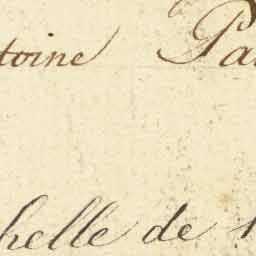 toine Pa
helle de